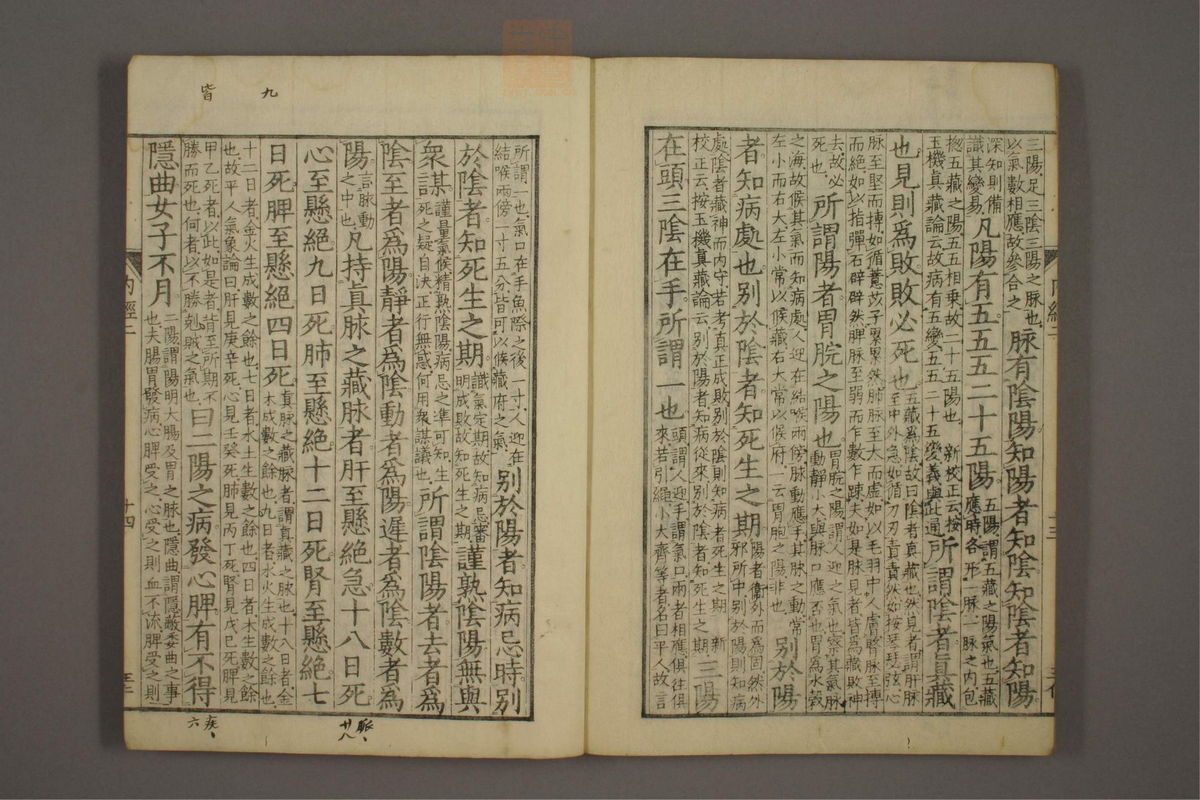 三陽足三陰三陽之脉也
以氣數相應故參合之
脉有陰陽知陽者知陰知陰者知陽
深知則備
識其變易
凡陽有五五五二十五陽
五陽謂五藏之陽氣也五藏
應時各形一脉一脉之内包
揔五藏之陽五五相乗故二十五陽也 新校正云按
玉機真藏論云故病有五變五五二十五變義與此通
所謂陰者真藏
也見則爲敗敗必死也
五藏爲陰故曰陰者真藏也然見者謂肝脉
至中外急如循刀刃責責然如按琴瑟弦心
脉至堅而搏如循薏苡子累累然肺脉至大而虚如以毛羽中人膚腎脉至搏
而絶如以指彈石辟辟然脾脉至弱而乍數乍踈夫如是脉見者皆爲藏敗神
去故必
死也
所謂陽者胃脘之陽也
胃脘之陽謂人迎之氣也察其氣脉
動靜小大與脉口應否也胃爲水穀
之海故候其氣而知病處人迎在結喉兩傍脉動應手其脉之動常
左小而右大左小常以候藏右大常以候府一云胃胞之陽非也
别於陽
者知病處也别於陰者知死生之期
陽者衛外而爲固然外
邪所中别於陽則知病
處陰者藏神而内守若考真正成敗别於陰則知病者死生之期 新
校正云按玉機真藏論云别於陽者知病從來别於陰者知死生之期
三陽
在頭三陰在手所謂一也
頭謂人迎手謂氣口兩者相應俱往俱
來若引繩小大齊等者名曰平人故言
所謂一也氣口在手魚際之後一寸人迎在
結喉兩傍一寸五分皆可以候藏府之氣
别於陽者知病忌時别
於陰者知死生之期
識氣定期故知病忌審
明成敗故知死生之期
謹熟陰陽無與
衆謀
謹量氣候精熟陰陽病忌之準可知生
死之疑自決正行無惑何用衆謀議也
所謂陰陽者去者爲
陰至者爲陽靜者爲陰動者爲陽遲者爲陰數者爲
陽
言脉動
之中也
凡持眞脉之藏脉者肝至懸絶急十八日死
心至懸絶九日死肺至懸絶十二日死腎至懸絶七
日死脾至懸絶四日死
真脉之藏脉者謂真藏之脉也十八日者金
木成數之餘也九日者水火生成數之餘也
十二日者金火生成數之餘也七日者水土生數之餘也四日者木生數之餘
也故平人氣象論曰肝見庚辛死心見壬癸死肺見丙丁死腎見戊巳死脾見
甲乙死者以此如是者皆至所期不
勝而死也何者以不勝剋賊之氣也
曰二陽之病發心脾有不得
隱曲女子不月
二陽謂陽明大腸及胃之脉也隱曲謂隱蔽委曲之事
也夫腸胃發病心脾受之心受之則血不流脾受之則
内經二
十四
十三
九
皆
脈
廿八
疾
六